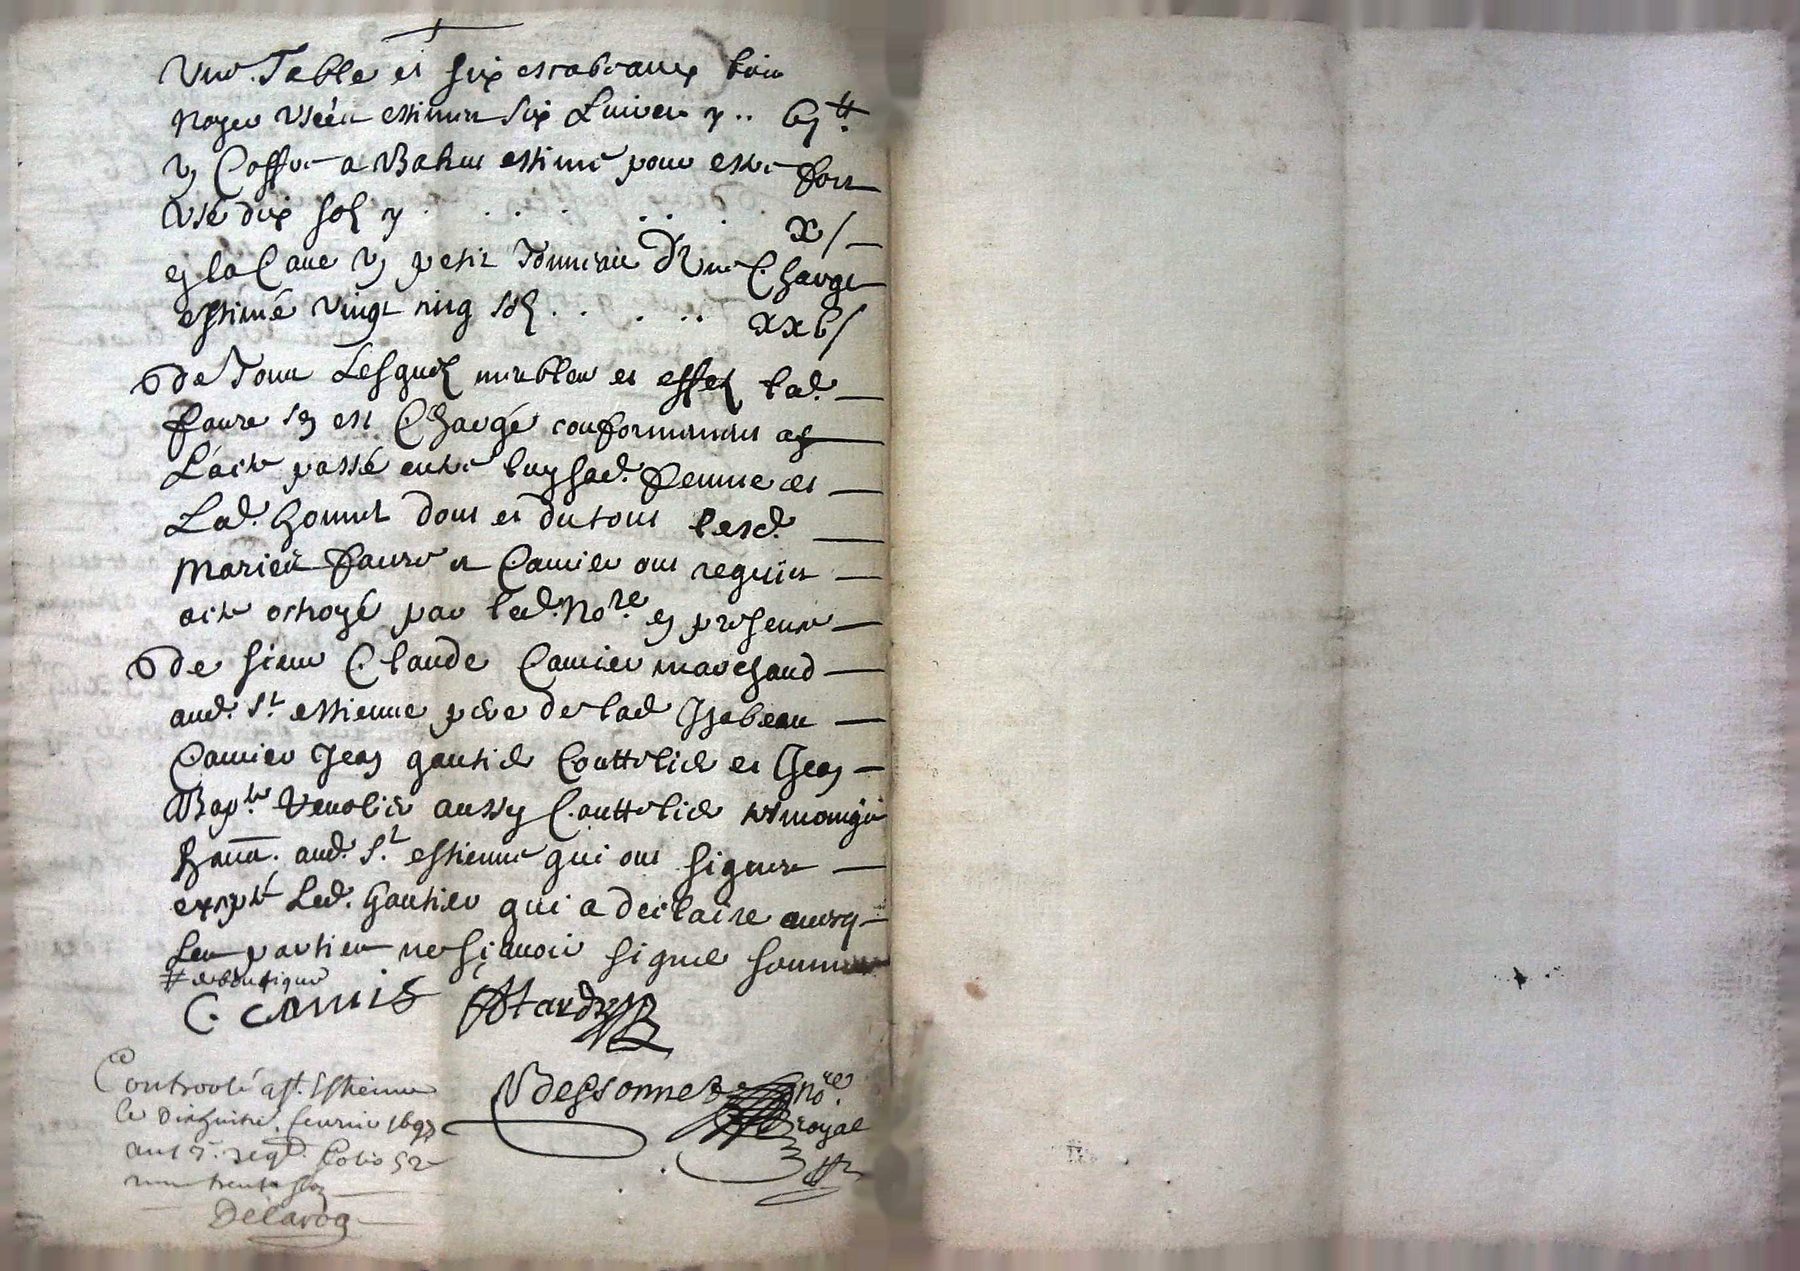 Une Table et six escabeaux bois
noyer usées estimez six Livres y .. vj ₶
un Coffre a Bahut estimé pour estre fort
usé dix solz y . . . . . . . x s
en la Cave un petit Tonneau d'une Charge
estimé vingt cinq solz . . . . . xxv s
de Tous Lesquelz meubles et effetz led.
Faure s'en est Chargé conformement a
L'acte passé entre luy sad. femme et
Lad. honnet dont et du tout lesd.
mariez Faure et Camier ont requis
acte octroyé par led. No.re en presence
de sieur Claude Camier marchand
aud. St. estienne père de lad Izabeau
Camier Jean gautier Couttelier et Jean
Bap.te Venolier aussy Couttelier tesmoings
aud. St. estienne qui ont signez
excepté Led. Gautier qui a declairé
les parties ne sçavoir signer
# de boutique
C. camiér Hardy
Dessonnez no.re
royal
Controolé a St. Estienne
le dixhuitie. feuvrier 1693
au 5. reg. folio 52
trente solz
Delaroa